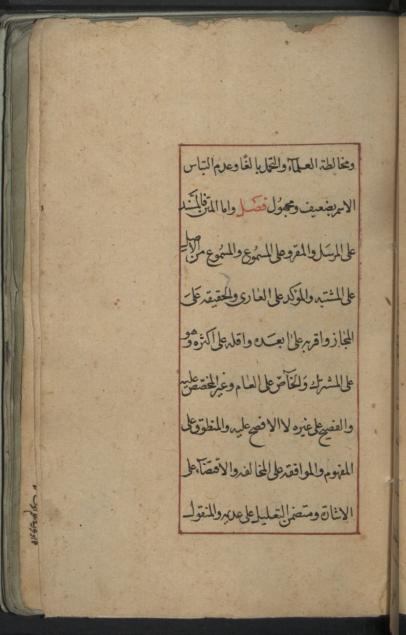 ومخالطة العلماء والتحمل بالغا وعدم التباس
الاسم بضعيف ومجهول فصل واما المتن فالمسند
على المرسل والمقرو على المسموع والمسموع من الاصل
على المشتبه والموكد على العارى والحقيقه على
المجاز واقربه على ابعده واقله على اكثره وهو
على المشترك والخاص على العام وغير المخصص عليه
والفصيح على غيره لا الافصح عليه والمنطوق على
المفهوم والموافقه على المخالفه والاقتضاء على
الاشارة ومتضمن التعليل على عدمه والمنقول